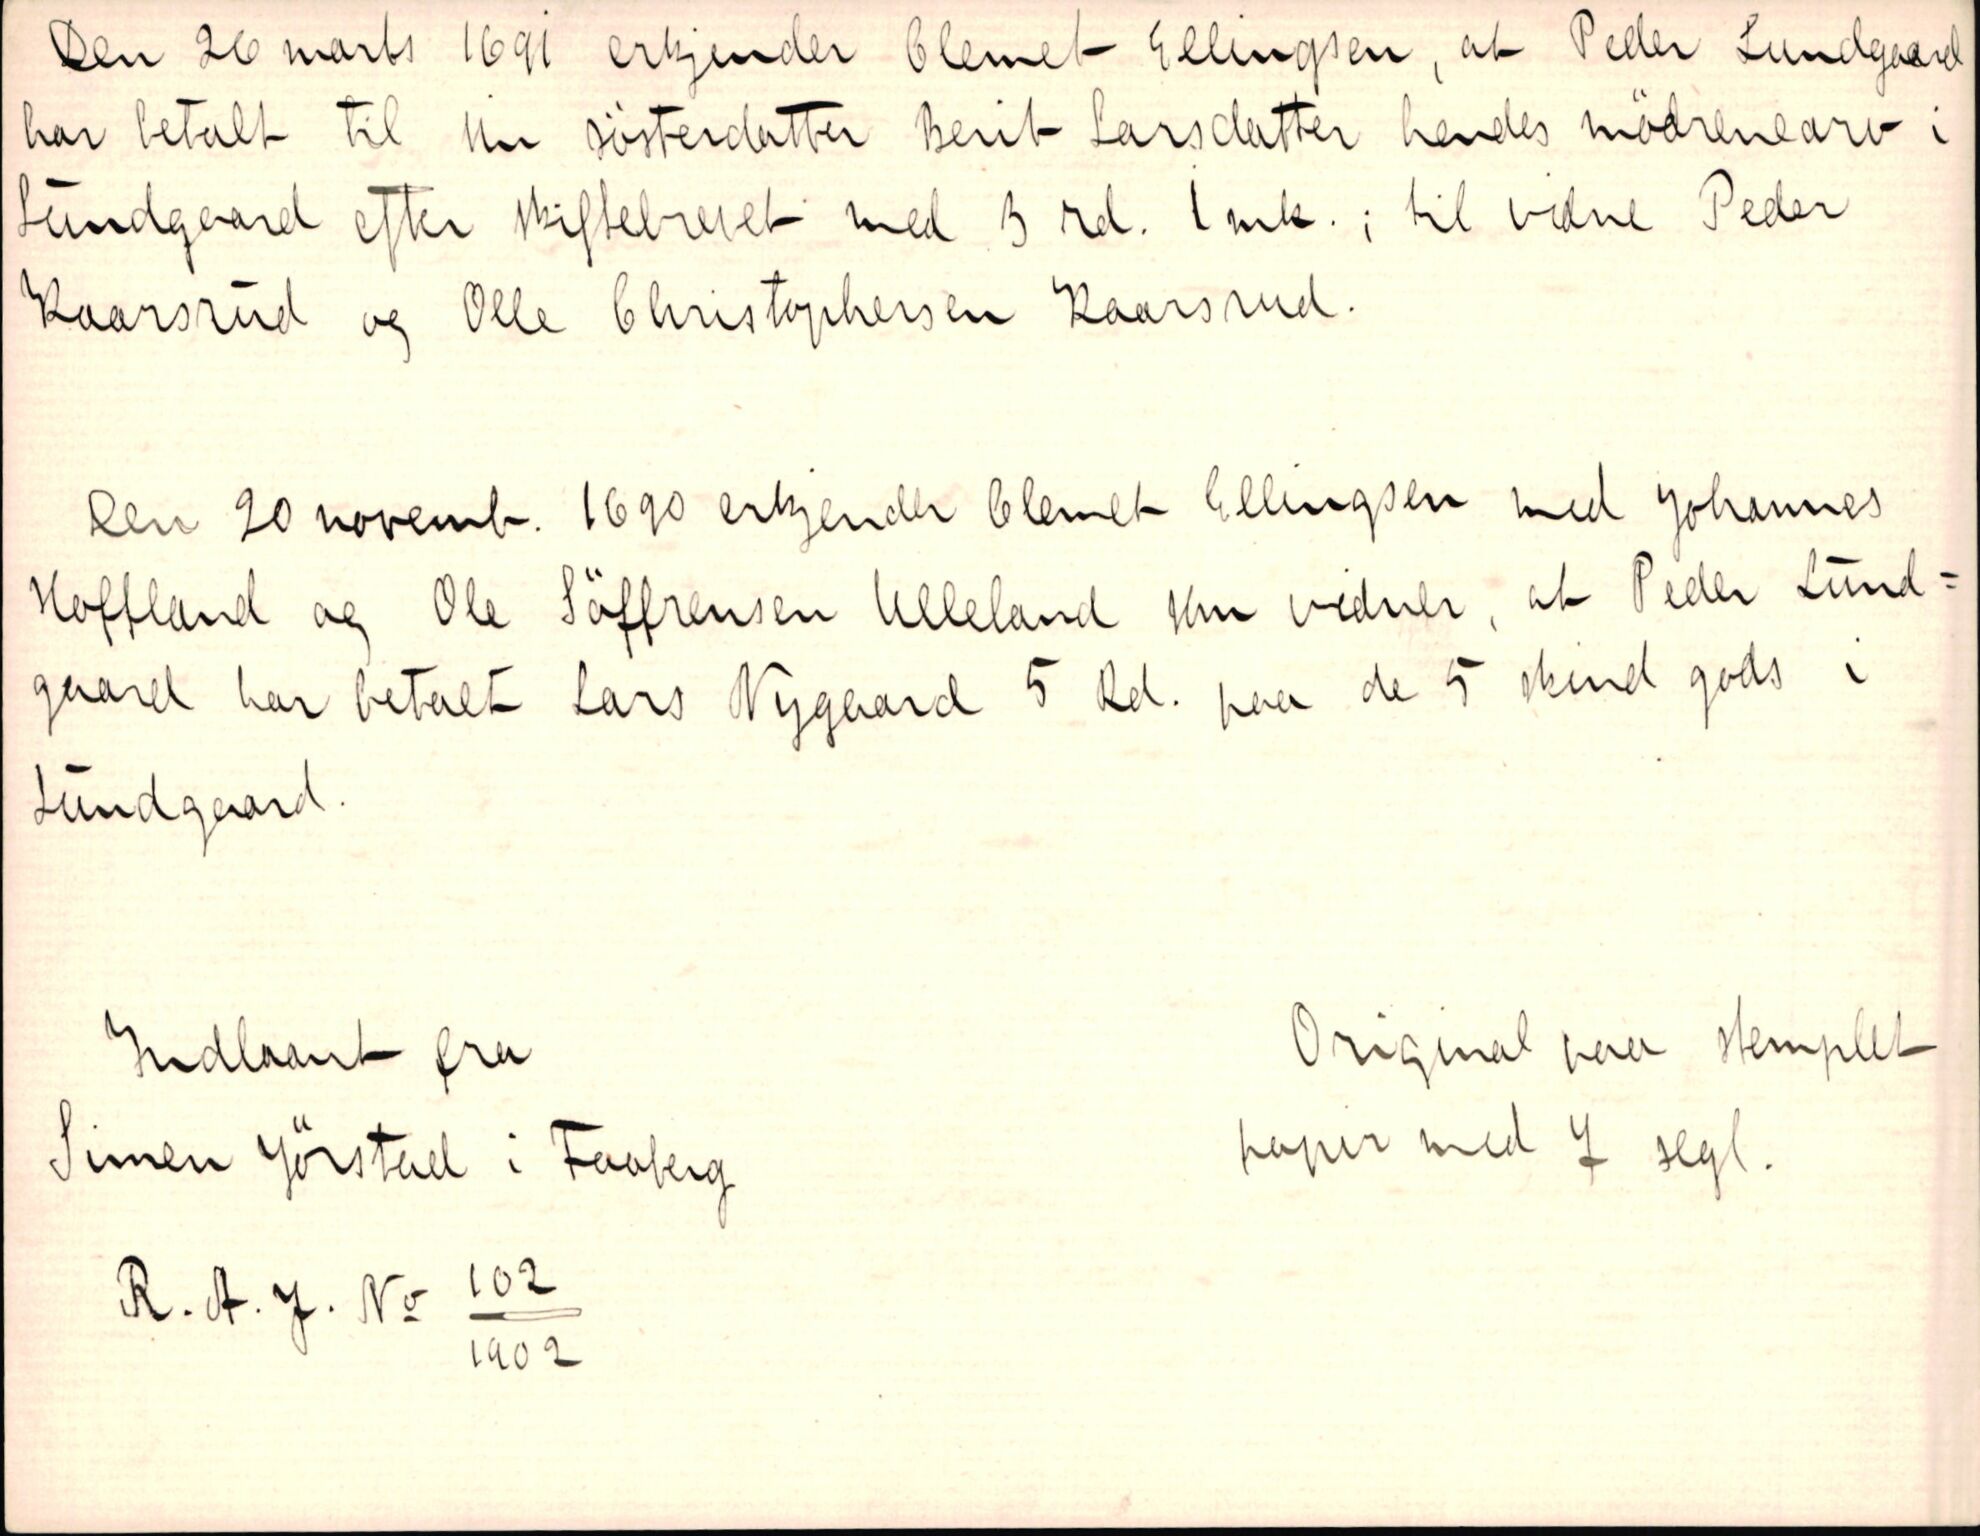 Den 26 marts 1691 erkjender Clemet Ellingsen, at Peder Lundgaard
har betalt til sin sösterdatter Berit Larsdatter hendes mödrenearv i
Lundgaard efter skiftebrevet med 3 rd. 1 mk.; til vidne Peder
Kaarsrud og Olle Christophersen Kaarsrud.
Den 20 novemb. 1690 erkjender Clemet Ellingsen med Johannes
Hoffland og Ole Söffrensen Ulleland som vidner, at Peder Lund=
gaard har betalt Lars Nygaard 5 Rd. paa de 5 skind gods i
Lundgaard.
Indlaant fra
Simen Jörstad i Faaberg
R. A. J. No 102/1902
Original paa stemplet
papir med 7 segl.